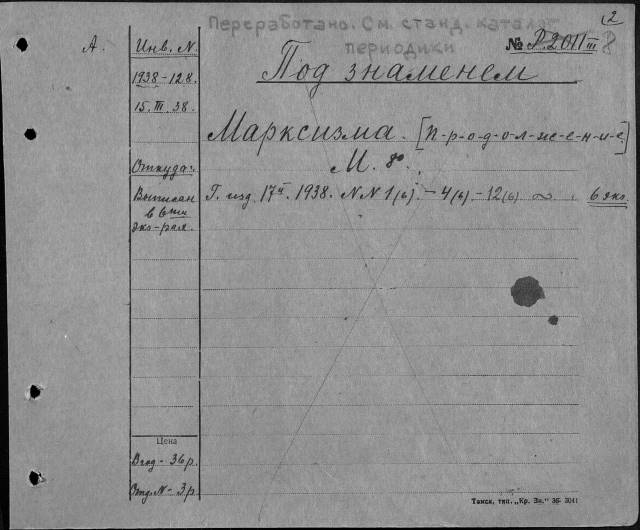 Переработано. См. станд. каталог
периодики
2
А.
Инв. N.
№ Р.2011 III 8
1938-128.
Под знаменем
15.III.38.
Марксизма. [п-р-о-д-о-л-ж-е-н-и-е.]
Откуда:
М.
Выписан
Г. изд. 17й. 1938. N N 1(6). - 4(6). - 12(6) ∞ . 6 экз.
в 6ти
экз-рах.
Цена
В год - 36 р.
Отд. N - 3 р.
Томск. тип. „Кр. Зн." 36 3041